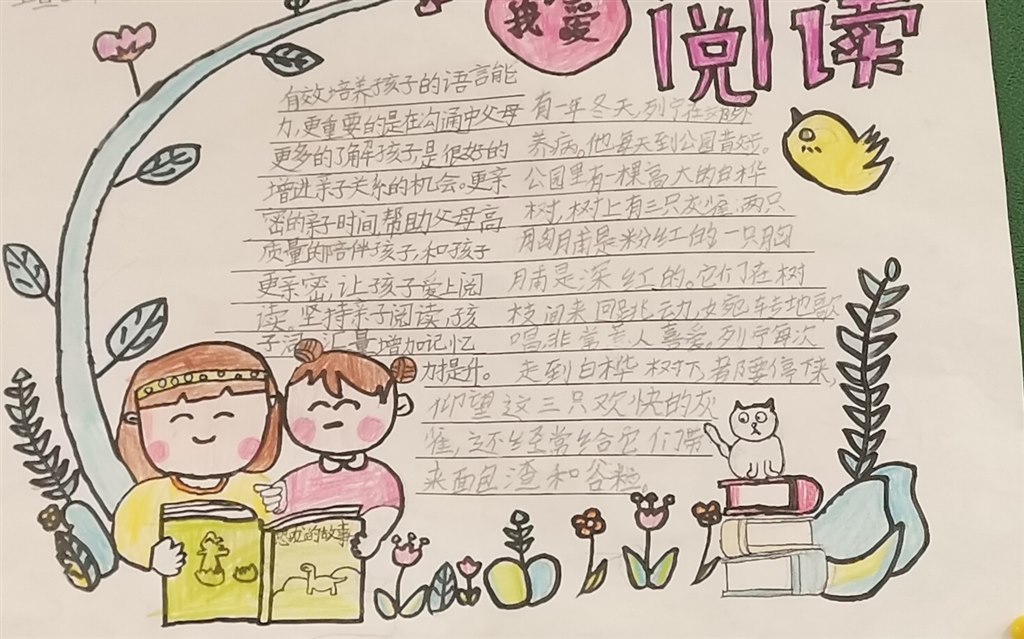 我爱
阅读
有效培养孩子的语言能
力,更重要的是在沟通中父母
更多的了解孩子,是很好的
增进亲子关系的机会。更亲
密的亲子时间帮助父母高
质量的陪伴孩子,和孩子
更亲密,让孩子爱上阅
读。坚持亲子阅读,孩
子汇量增加记忆
力提升。
有一年冬天,列宁在郊外
养病。他每天到公园散步。
公园里有一棵高大的白桦
树,树上有三只灰雀:两只
胸脯是粉红的,一只胸
脯是深红的。它们在树
枝间来回跳动,婉转地歌
唱,非常惹人喜爱。列宁每次
走到白桦树下,都要停下来,
仰望这三只欢快的灰
雀,还经常给它们带
来面包渣和谷粒。
恐龙的故事